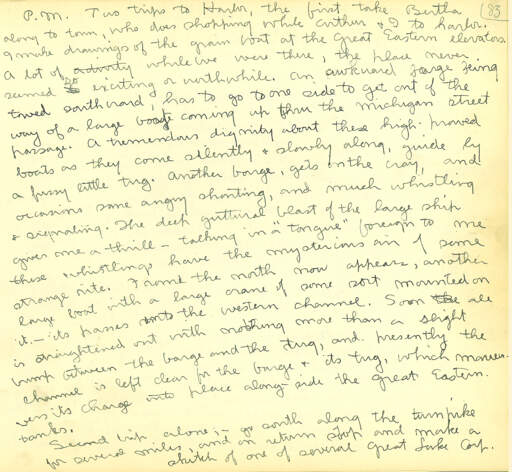 83
P.M. Two trips to Harbor, the first, take Bertha
along to town, who does shopping while Arthur & I to harbor.
I make drawings of the grain boat at the Great Eastern elevators.
A lot of activity while we were there, the place never
seemed so exciting or worthwhile. An awkward barge being
towed southward, has to go to one side to get out of the
way of a large boat coming up thru the Michigan Street
passage. A tremendous dignity about these high-prowed
boats as they come silently & slowly along, guide by
a fussy little tug. Another barge, gets in the way, and
occasions some angry shouting, and much whistling
& signaling. The deep guttural blast of the large ship
gives one a thrill – talking in a "tongue" foreign to me
these whistlings have the mysterious air of some
strange rite. From the north now appears, another
large boat with a large crane of some sort mounted on
it. – its passes into the western channel. Soon all
is straightened out with nothing more than a slight
bump between the barge and the tug, and presently the
channel is left clear for the barge & its tug, which maneu-
vers its charge into place along-side the Great Eastern.
banks.
Second trip, alone; – go south along the turnpike
for several miles, and on return stop and make a
sketch of one of several Great Lake Corp.